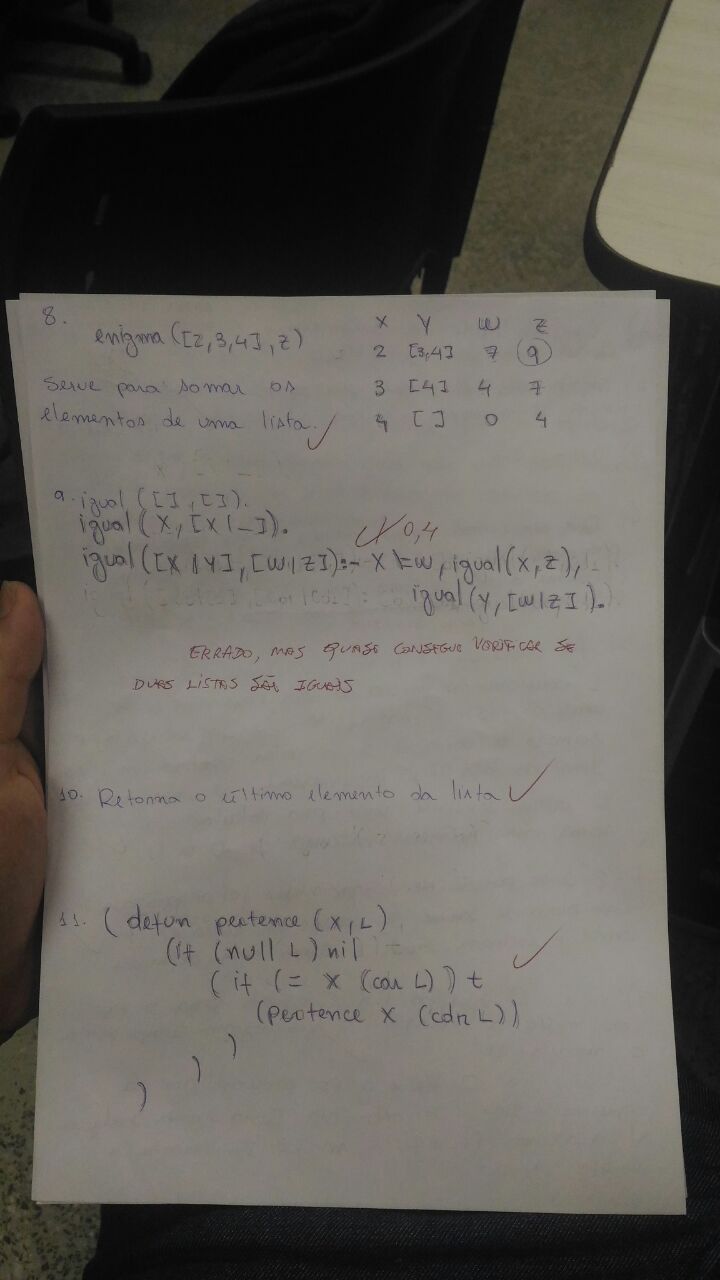 8.
enigma ([2,3,4], z)
Serve para somar os
elementos de uma lista.
X Y W Z
2 [3,4] 7 9
3 [4] 4 7
4 [ ] 0 4
9. igual ([ ], [ ]).
igual (X, [X | _ ]).
0,4
igual ([X | Y], [W | Z]) :- X \= W, igual (X, Z),
igual (Y, [W | Z]).
ERRADO, MAS QUASE CONSEGUE VERIFICAR SE
DUAS LISTAS SÃO IGUAIS
10. Retorna o último elemento da lista
11. ( defun pertence (X, L)
(if (null L) nil
( if (= X (car L)) t
(pertence X (cdr L))
)
)
)